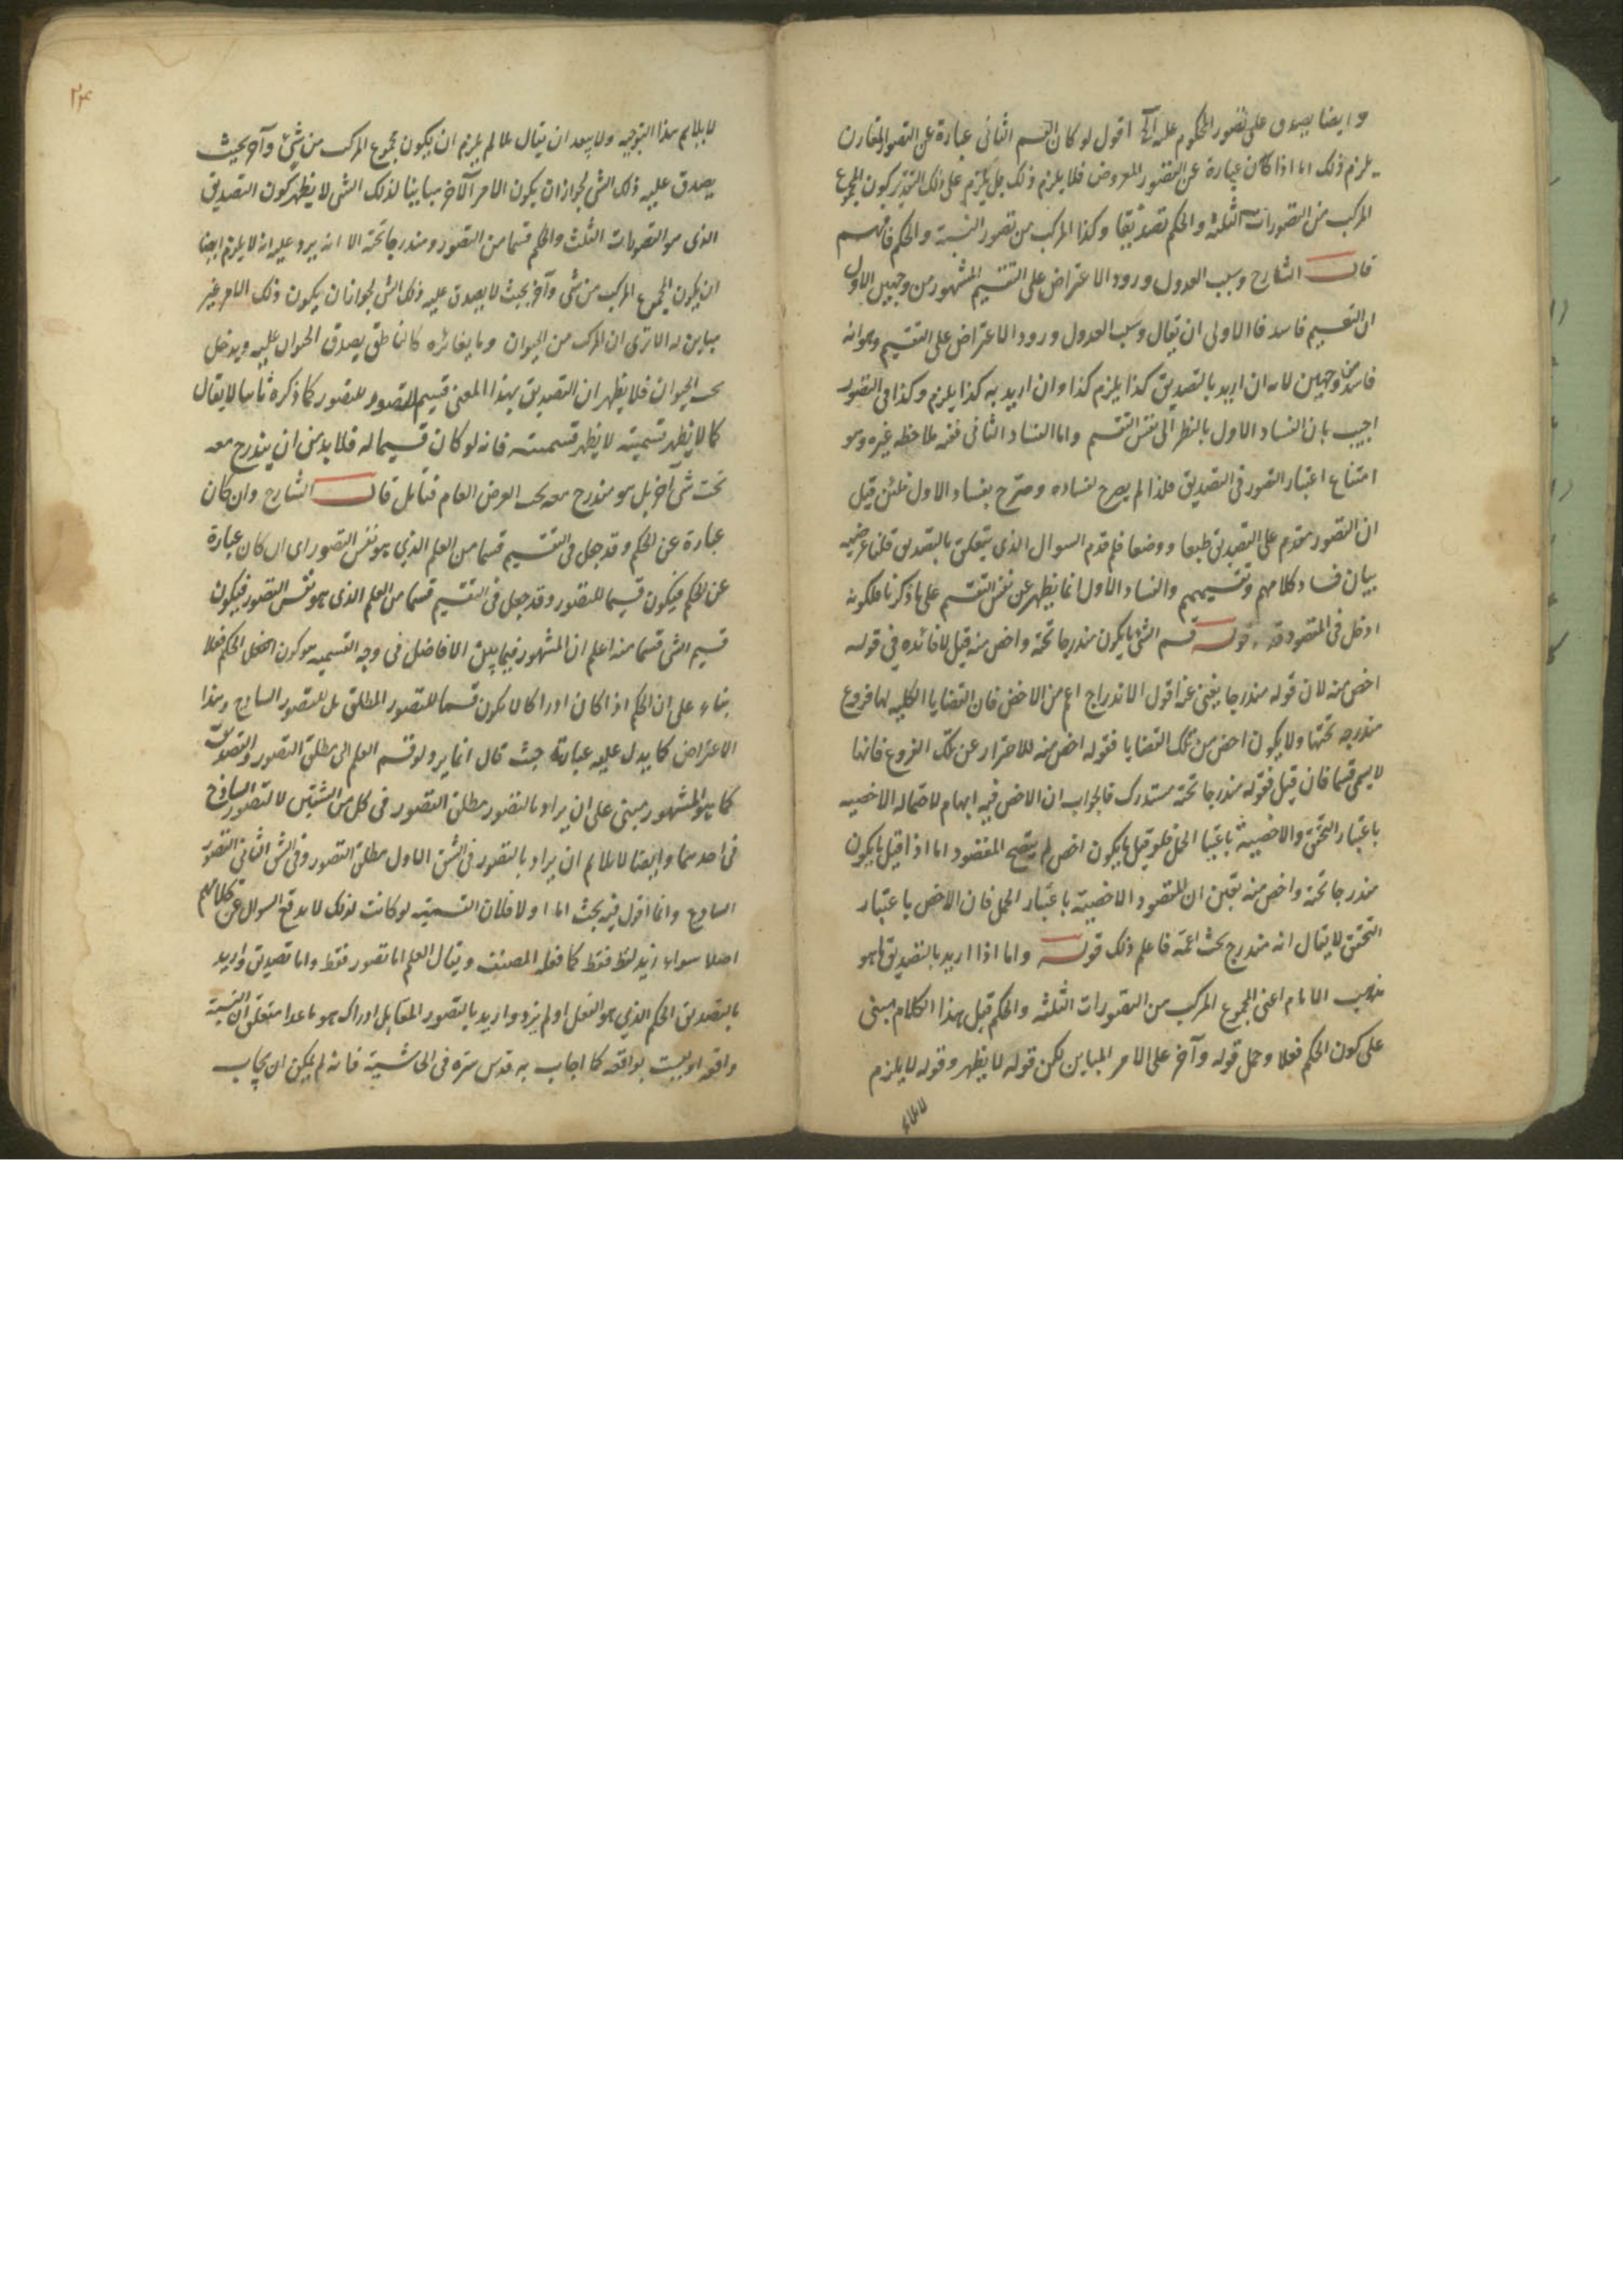 وايضا يصدق على تصور المحكوم عليه الخ اقول لو كان القسم الثانى عبارة عن التصور المقارن
يلزم ذلك اما اذا كان عبارة عن التصور المعروض فلا يلزم ذلك بل يلزم على ذلك التقدير كون المجموع
المركب من التصورات الثلثة والحكم تصديقا وكذا المركب من تصور النسبة والحكم فافهم
قال الشارح وسبب العدول ورود الاعتراض على التقسيم المشهور من وجهين الاول
ان التقسيم فاسد فالاولى ان يقال وسبب العدول ورود الاعتراض على التقسيم وهو انه
فاسد من وجهين لانه ان اريد بالتصديق كذا يلزم كذا وان اريد به كذا يلزم وكذا فى التصور
اجيب بان الفساد الاول بالنظر الى نفس التقسيم واما الفساد الثانى فمنه ملاحظة غيره وهو
امتناع اعتبار التصور فى التصديق فلذا لم يصرح بفساده وصرح بفساد الاول فلئن قيل
ان التصور مقدم على التصديق طبعا ووضعا فلم قدم السوال الذى يتعلق بالتصديق قلنا غرضه
بيان فساد كلامهم وتقسيمهم والفساد الاول انما يظهر عن نفس التقسيم على ما ذكرنا فلكونه
ادخل فى المقصود قدمه قوله قسم الشئ ما يكون مندرجا تحته واخص منه قيل لا فائدة فى قوله
اخص منه لان قوله مندرجا يغنى عنه اقول الاندراج اعم من الاخص فان القضايا الكلية لها فروع
مندرجه تحتها ولا يكون اخص من تلك القضايا فقوله اخص منه للاحتراز عن تلك الفروع فانها
لا يسمى قسما فان قيل فقوله مندرجا تحته مستدرك فالجواب ان الاخص فيه ابهام لاحتماله الاخصيه
باعتبار التحقق والاخصية باعتبار الحمل فلو قيل ما يكون اخص لم يتضح المقصود اما اذا قيل ما يكون
مندرجا تحته واخص منه تعين ان المقصود الاخصية باعتبار الحمل فان الاخص باعتبار
التحقق لا يقال انه مندرج تحت اعمه فاعلم ذلك قوله واما اذا اريد بالتصديق ما هو
مذهب الامام اعنى المجموع المركب من التصورات الثلثه والحكم قيل هذا الكلام مبنى
على كون الحكم فعلا وحمل قوله وآخر على الامر المباين لكن قوله لا يظهر وقوله لا يلزم
لا يلايم
٢٤
لا يلايم هذا التوجيه ولا يبعد ان يقال لما لم يلزم ان يكون مجموع المركب من شئ وآخر بحيث
يصدق عليه ذلك الشى لجواز ان يكون الامر الآخر مباينا لذلك الشى لا يظهر كون التصديق
الذى هو التصورات الثلث والحكم قسما من التصور ومندرجا تحته الا انه يرد عليه انه لا يلزم ايضا
ان يكون المجموع المركب من شى وآخر بحيث لا يصدق عليه ذلك الشى لجواز ان يكون ذلك الامر غير
مباين له الا ترى ان المركب من الحيوان وما يغايره كالناطق يصدق الحيوان عليه ويدخل
تحت الحيوان فلا يظهر ان التصديق بهذا المعنى قسيم للتصور كما ذكره ثانيا لا يقال
كما لا يظهر قسميته لا يظهر قسيميته فانه لو كان قسيما له فلا بد من ان يندرج معه
تحت شى آخر بل هو مندرج معه تحت العرض العام فتأمل قال الشارح وان كان
عبارة عن الحكم وقد جعل فى التقسيم قسما من العلم الذي هو نفس التصور اى ان كان عبارة
عن الحكم فيكون قسيما للتصور وقد جعل فى التقسيم قسما من العلم الذى هو نفس التصور فيكون
قسيم الشى قسما منه اعلم ان المشهور فيما بين الافاضل فى وجه القسيميه هو كون الحكم فعلا
بناء على ان الحكم اذا كان ادراكا لا يكون قسيما للتصور المطلق بل للتصور الساذج وهذا
الاعتراض كما يدل عليه عبارته حيث قال انما يرد لو قسم العلم الى مطلق التصور والتصديق
كما هو المشهور مبنى على ان يراد بالتصور مطلق التصور فى كل من الشقين لا التصور الساذج
فى احدهما وايضا لا يلايم ان يراد بالتصور فى الشق الاول مطلق التصور وفى الشق الثانى التصور
الساذج وانما اقول فيه بحث اما اولا فلان القسيميه لو كانت لذلك لا يدفع السوال عن كلامهم
اصلا سواء زيد لفظ فقط كما فعله المصنف ويقال العلم اما تصور فقط واما تصديق واريد
بالتصديق الحكم الذي هو الفعل او لم يزد واريد بالتصور المقابل ادراك هو ما عدا متعلق ان النسبة
واقعة او ليست بواقعه كما اجاب به قدس سره فى الحاشية فانه لم يمكن ان يجاب